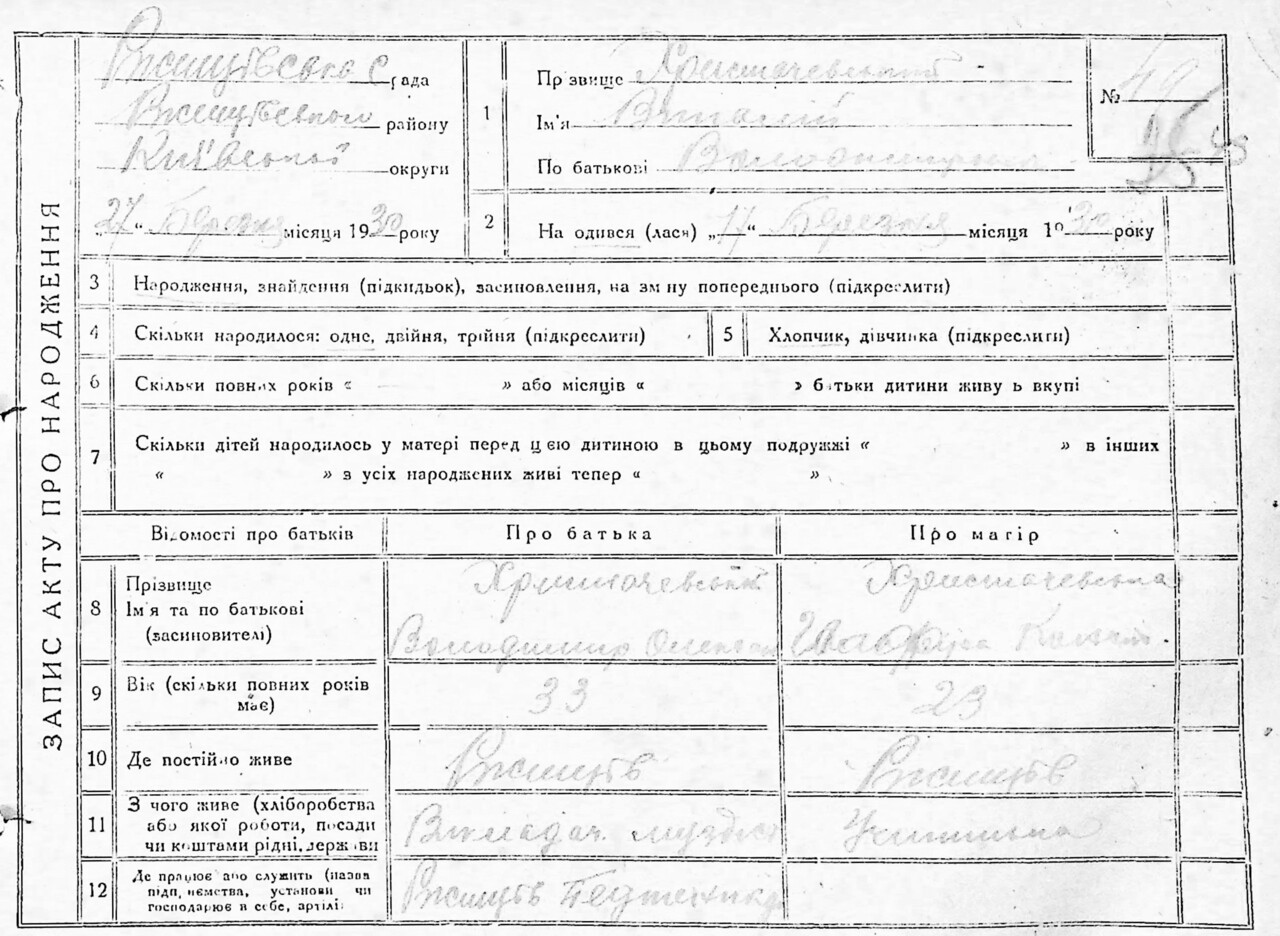 ЗАПИС АКТУ ПРО НАРОДЖЕННЯ
Ржищівська с рада
Ржищівського району
Київської округи
„27“ Березня місяця 1930 року
1
Прізвище Христочевський
Ім'я Віталій
По батькові Володимирович
№ 49
2
На одився (лася) „17“ Березня місяця 1930 року
3 Народження, знайдення (підкидьок), засиновлення, на зміну попереднього (підкреслити)
4 Скільки народилося: одне, двійня, трійня (підкреслити)
5 Хлопчик, дівчинка (підкреслити)
6 Скільки повних років « » або місяців « » батьки дитини живуть вкупі
7 Скільки дітей народилось у матері перед цією дитиною в цьому подружжі « » в інших
« » з усіх народжених живі тепер « »
Відомості про батьків Про батька Про матір
8
Прізвище Христочевський Христочевська
Ім'я та по батькові
(засиновителі) Володимир
9 Вік (скільки повних років має) 33 23
10 Де постійно живе Ржищів Ржищів
11
З чого живе (хліборобства
або якої роботи, посади Викладач
чи коштами рідні, держави
12
Де працює або служить (назва
підприємства, установи чи Ржищів Педтехнікум
господарює в себе, артілі)